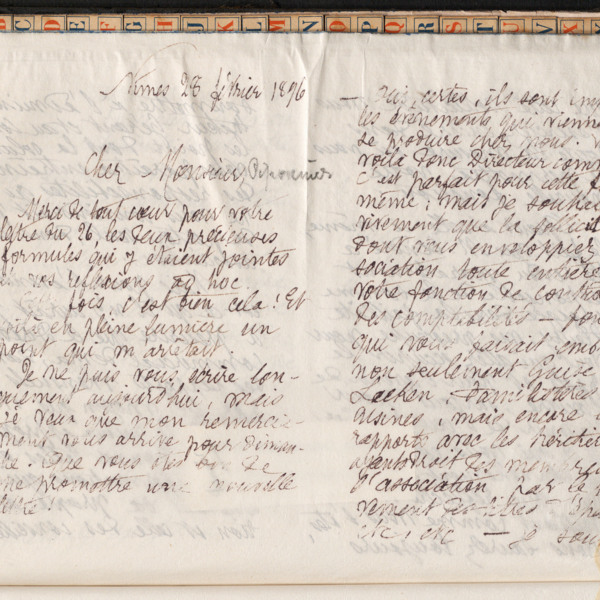 B C D E F G H I J K L M N O P Q R S T U V X
Nimes 28 février 1896
cher Monsieur Pernin
Merci de tout cœur pour votre
lettre du 26, les deux précieuses
formules qui y étaient jointes
et vos réflexions ad hoc.
fois, c'est bien cela! Et
voilà en pleine lumière un
point qui m'arrêtait.
Je ne puis vous écrire lon-
guement aujourd'hui, mais
je veux que mon remercie-
ment vous arrive pour diman-
che. Que vous êtes bon de
me promettre une nouvelle
lettre!
— Oui, certes, ils sont imp
les évènements qui vienne
se produire chez nous. V
voilà donc Directeur comm
c'est parfait pour cette f
même; mais je souhai
vivement que la sollicit
dont vous enveloppiez
sociation toute entière
votre fonction de contrô
des comptabilités — fon
qui vous faisait emb
non seulement Guise
Laeken, Familistères
usines, mais encore
rapports avec les hériti
ayant droit des membre
d'association par le
vement des titres
etc, etc — je sou